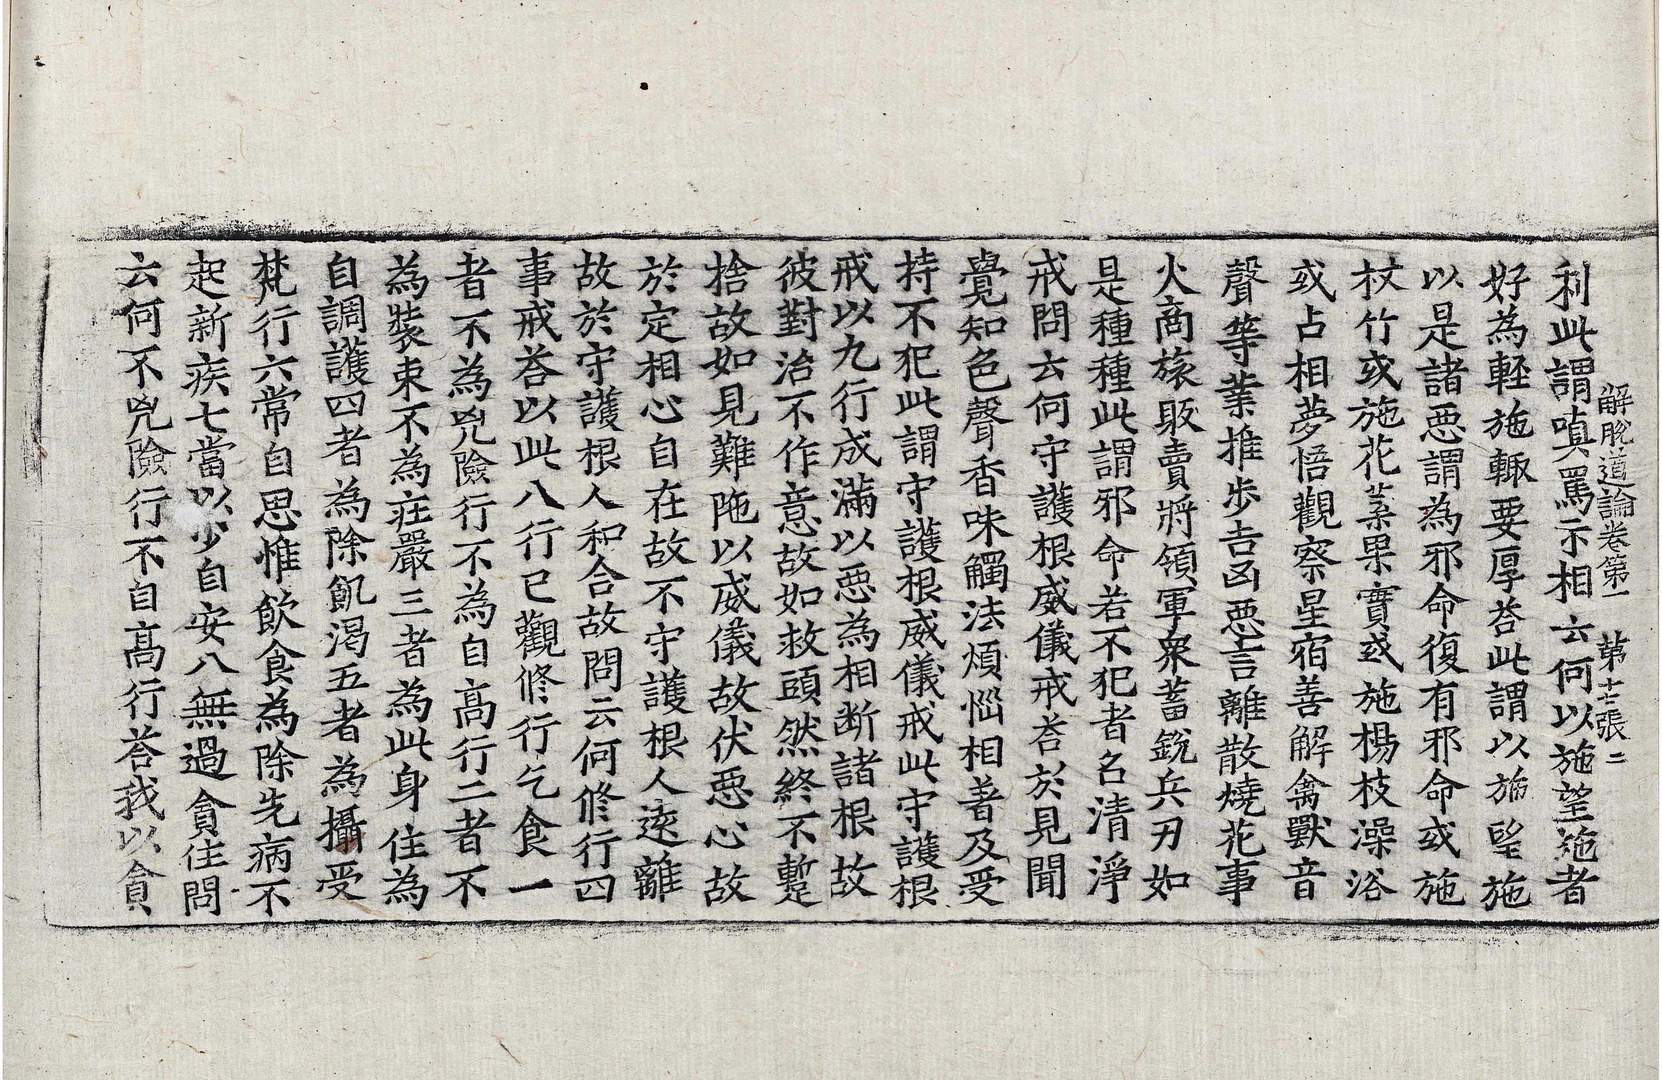 解脫道論卷第一　第十七張　二
利此謂嗔罵示相云何以施望施者
好為軽施輙要厚荅此謂以施望施
以是諸惡謂為邪命復有邪命或施
杖竹或施花菓果實或施楊枝澡浴
或占相夢悟觀察星宿善解禽獸音
聲等業推步吉凶惡言離散燒花事
火商旅販賣將領軍衆蓄銳兵刃如
是種種此謂邪命若不犯者名清淨
戒問云何守護根威儀戒荅於見聞
覺知色聲香味觸法煩惱相著及受
持不犯此謂守護根威儀戒此守護根
戒以九行成滿以惡為相断諸根故
彼對治不作意故如救頭然終不蹔
捨故如見難陁以威儀故伏惡心故
於定相心自在故不守護根人逺離
故於守護根人和合故問云何修行四
事戒荅以此八行已觀修行乞食一
者不為兇險行不為自高行二者不
為裝束不為莊嚴三者為此身住為
自調護四者為除飢渴五者為攝受
梵行六常自思惟飲食為除先病不
起新疾七當以少自安八無過貪住問
云何不兇險行不自高行荅我以貪